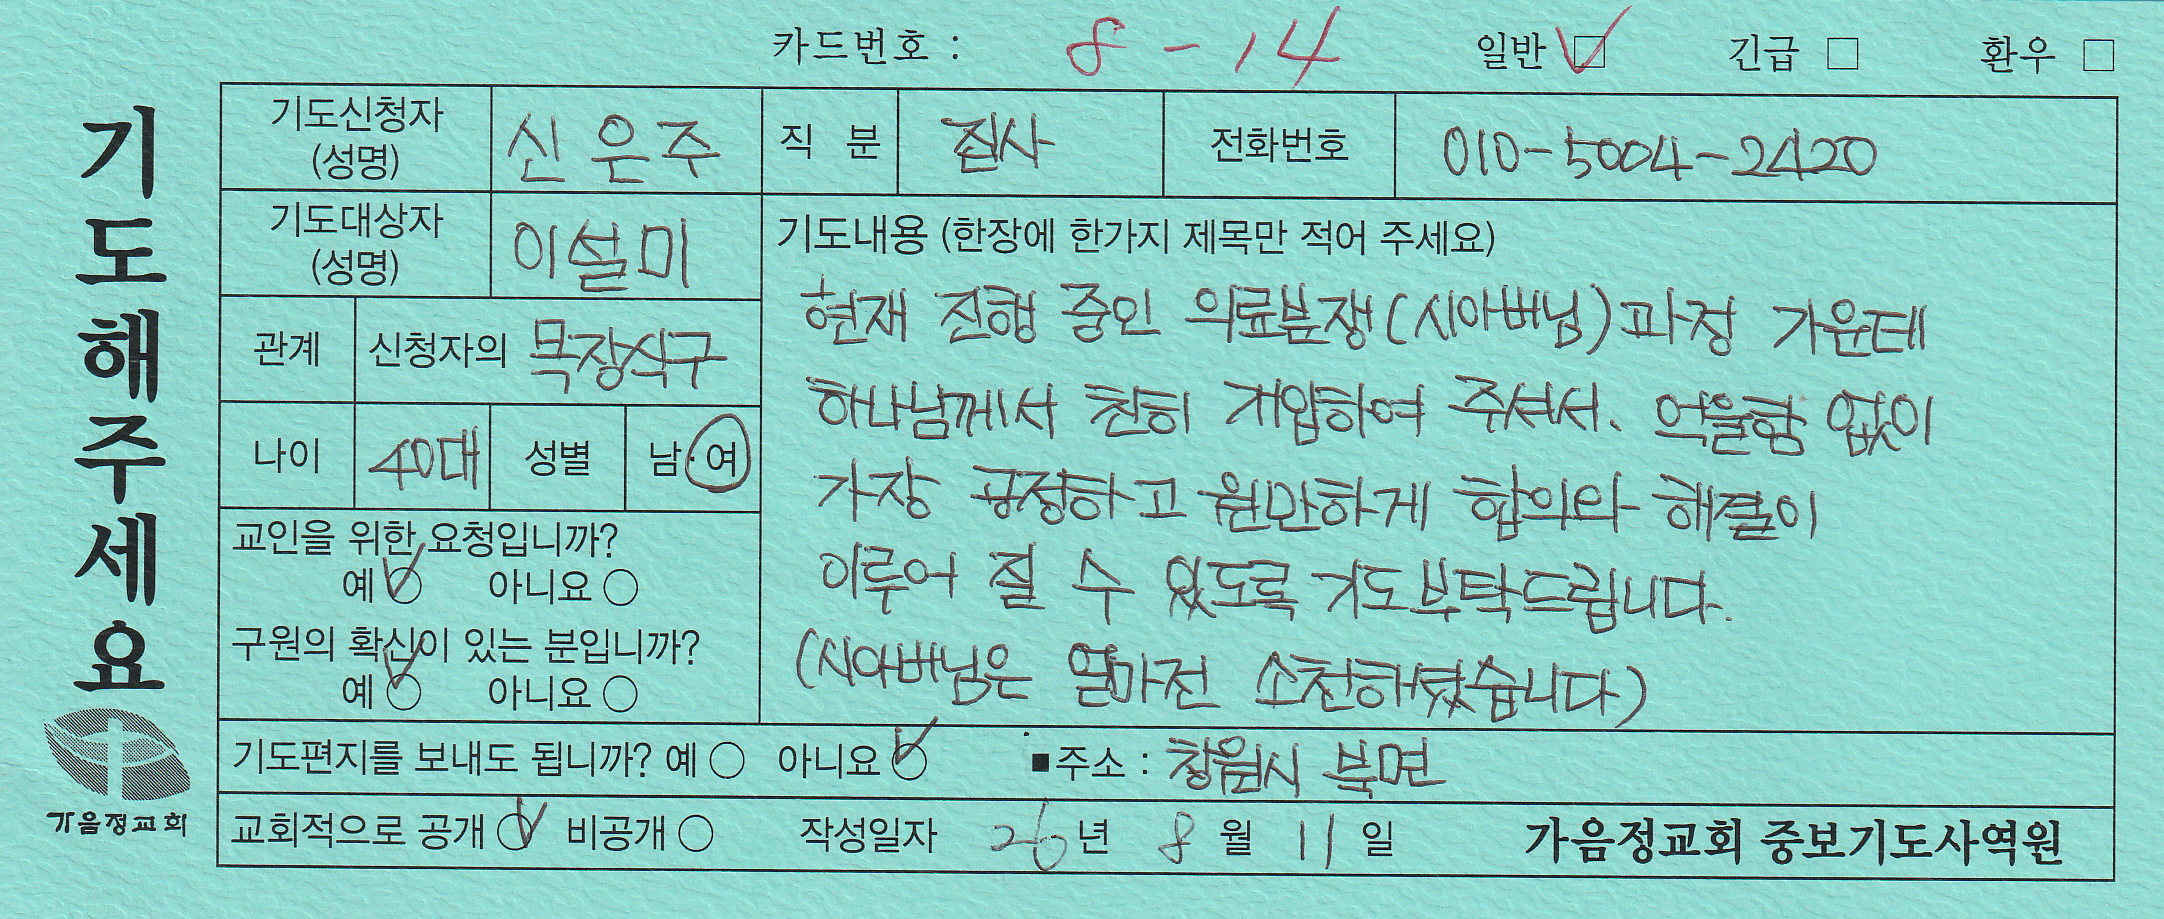 카드번호 : 8-14 일반 ☑ 긴급 □ 환우 □
기도해주세요
기도신청자 (성명) 신은주 직 분 집사 전화번호 010-5004-2420
기도대상자 (성명) 이설미
관계 신청자의 목장식구
나이 40대 성별 남·여
교인을 위한 요청입니까?
예 ○ 아니요 ○
구원의 확신이 있는 분입니까?
예 ○ 아니요 ○
기도내용 (한장에 한가지 제목만 적어 주세요)
현재 진행 중인 의료분쟁(시아버님)과정 가운데
하나님께서 친히 개입하여 주셔서. 억울함 없이
가장 공정하고 원만하게 합의와 해결이
이루어 질 수 있도록 기도부탁드립니다.
(시아버님은 얼마전 소천하셨습니다)
기도편지를 보내도 됩니까? 예 ○ 아니요 ○ ■주소 : 창원시 북면
교회적으로 공개 ○ 비공개 ○ 작성일자 26년 8월 11일 가음정교회 중보기도사역원
가음정교회